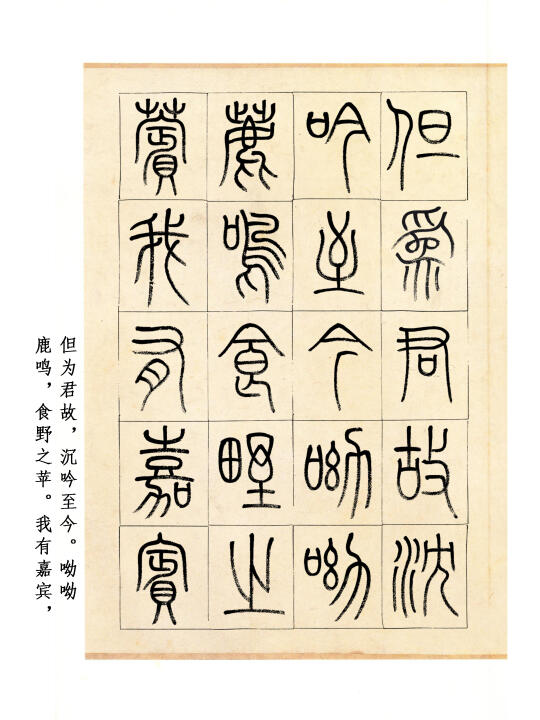 但爲君故沈
吟至今呦呦
鹿鳴食野之
薲我有嘉賓
但为君故，沉吟至今。呦呦
鹿鸣，食野之苹。我有嘉宾，